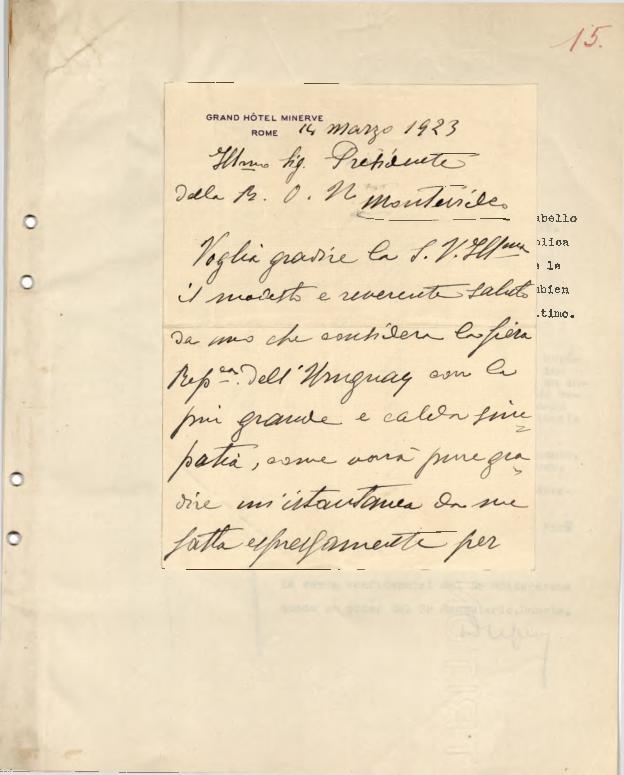 15.
GRAND HÔTEL MINERVE
ROME 14 marzo 1923
Ill.mo Sig. Presidente
della R. O. U. Montevideo
Voglia gradire la S. V. Ill.ma
il modesto e reverente saluto
da uno che considera la fiera
Rep.ca dell'Uruguay con la
più grande e calda sim
patia, come vorrà pure gra
dire un'istantanea da me
fatta espressamente per
abello
blica
la
ubien
timo.